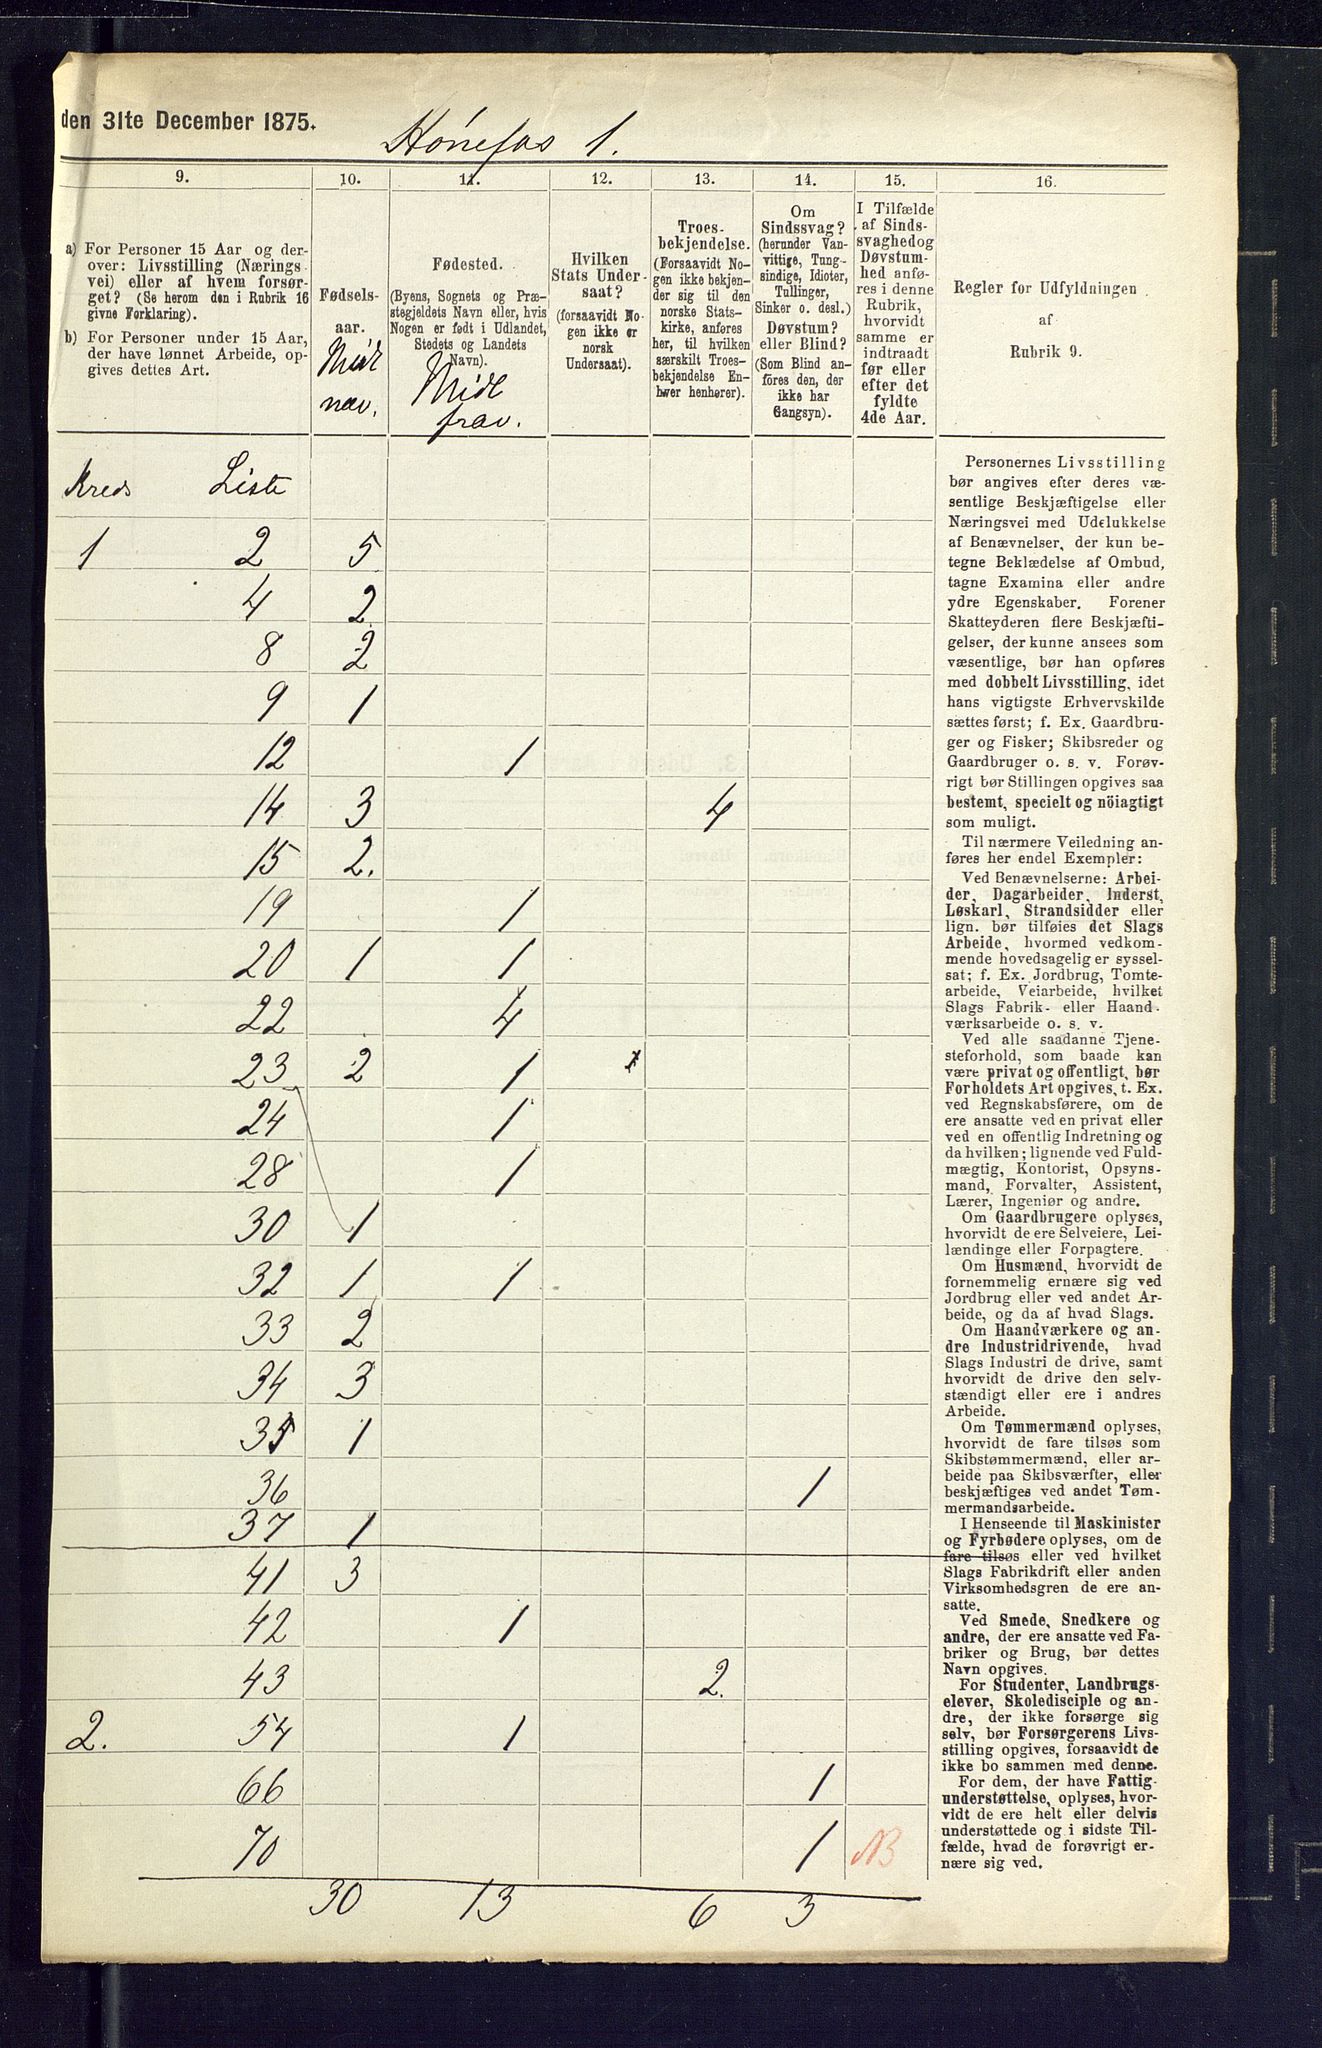 den 31te December 1875.
Hönefos 1.
9. 10. 11. 12. 13. 14. 15. 16.
a) For Personer 15 Aar og der-
over: Livsstilling (Nærings-
vei) eller af hvem forsør-
get? (Se herom den i Rubrik 16
givne Forklaring).
b) For Personer under 15 Aar,
der have lønnet Arbeide, op-
gives dettes Art.
Fødsels-
aar.
Midl
nær.
Fødested.
(Byens, Sognets og Præ-
stegjeldets Navn eller, hvis
Nogen er født i Udlandet,
Stedets og Landets
Navn).
Midl
frav.
Hvilken
Stats Under-
saat?
(forsaavidt No-
gen ikke er
norsk
Undersaat).
Troes-
bekjendelse.
(Forsaavidt No-
gen ikke bekjen-
der sig til den
norske Stats-
kirke, anføres
her, til hvilken
særskilt Troes-
bekjendelse En-
hver henhører).
Om
Sindssvag?
(herunder Van-
vittige, Tung-
sindige, Idioter,
Tullinger,
Sinker o. desl.)
Døvstum?
eller Blind?
(Som Blind an-
føres den, der
ikke har
Gangsyn).
I Tilfælde
af Sinds-
svaghed og
Døvstum-
hed anfø-
res i denne
Rubrik,
hvorvidt
samme er
indtraadt
før eller
efter det
fyldte
4de Aar.
Regler for Udfyldningen
af
Rubrik 9.
Kreds Liste
1 2 5
4 2
8 2
9 1
12 1
14 3 4
15 2.
19 1
20 1 1
22 4
23 2 1
24 1
28 1
30 1
32 1 1
33 2
34 3
35 1
36 1
37 1
41 3
42 1
43 2.
2. 54 1
66 1
70 1 NB
30 13 6 3
Personernes Livsstilling
bør angives efter deres væ-
sentlige Beskjæftigelse eller
Næringsvei med Udelukkelse
af Benævnelser, der kun be-
tegne Beklædelse af Ombud,
tagne Examina eller andre
ydre Egenskaber. Forener
Skatteyderen flere Beskjæfti-
gelser, der kunne ansees som
væsentlige, bør han opføres
med dobbelt Livsstilling, idet
hans vigtigste Erhvervskilde
sættes først; f. Ex. Gaardbru-
ger og Fisker; Skibsreder og
Gaardbruger o. s. v. Forøv-
rigt bør Stillingen opgives saa
bestemt, specielt og nöiagtigt
som muligt.
Til nærmere Veiledning an-
føres her endel Exempler:
Ved Benævnelserne: Arbei-
der, Dagarbeider, Inderst,
Løskarl, Strandsidder eller
lign. bør tilføies det Slags
Arbeide, hvormed vedkom-
mende hovedsagelig er syssel-
sat; f. Ex. Jordbrug, Tomte-
arbeide, Veiarbeide, hvilket
Slags Fabrik- eller Haand-
værksarbeide o. s. v.
Ved alle saadanne Tjene-
steforhold, som baade kan
være privat og offentligt, bør
Forholdets Art opgives, t. Ex.
ved Regnskabsførere, om de
ere ansatte ved en privat eller
ved en offentlig Indretning og
da hvilken; lignende ved Fuld-
mægtig, Kontorist, Opsyns-
mand, Forvalter, Assistent,
Lærer, Ingeniør og andre.
Om Gaardbrugere oplyses,
hvorvidt de ere Selveiere, Lei-
lændinge eller Forpagtere.
Om Husmænd, hvorvidt de
fornemmelig ernære sig ved
Jordbrug eller ved andet Ar-
beide, og da af hvad Slags.
Om Haandværkere og an-
dre Industridrivende, hvad
Slags Industri de drive, samt
hvorvidt de drive den selv-
stændigt eller ere i andres
Arbeide.
Om Tømmermænd oplyses,
hvorvidt de fare tilsøs som
Skibstømmermænd, eller ar-
beide paa Skibsværfter, eller
beskjæftiges ved andet Tøm-
mermandsarbeide.
I Henseende til Maskinister
og Fyrbødere oplyses, om de
fare tilsøs eller ved hvilket
Slags Fabrikdrift eller anden
Virksomhedsgren de ere an-
satte.
Ved Smede, Snedkere og
andre, der ere ansatte ved Fa-
briker og Brug, bør dettes
Navn opgives.
For Studenter, Landbrugs-
elever, Skoledisciple og an-
dre, der ikke forsørge sig
selv, bør Forsørgerens Livs-
stilling opgives, forsaavidt de
ikke bo sammen med denne.
For dem, der have Fattig-
understøttelse, oplyses, hvor-
vidt de ere helt eller delvis
understøttede og i sidste Til-
fælde, hvad de forøvrigt er-
nære sig ved.